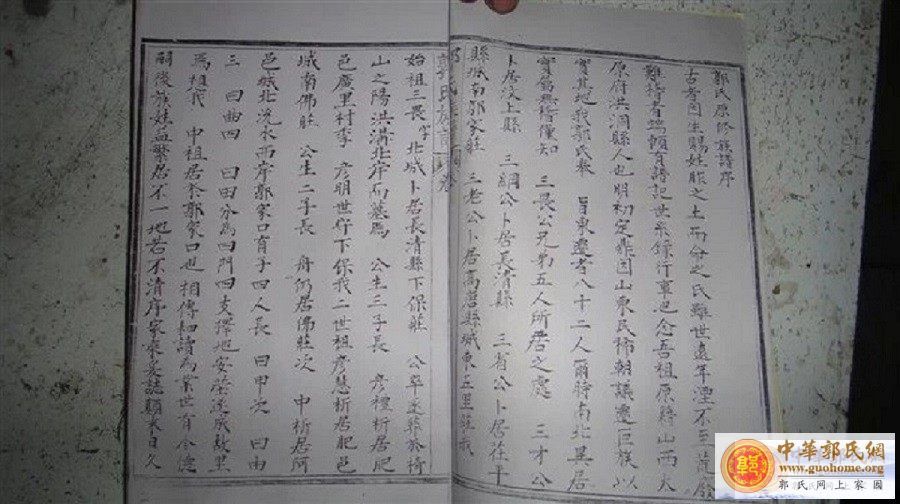 郭氏原修族譜序
古者因生賜姓胙之土而命之氏雖世遠年湮不至荒
難稽者端賴有譜記世系錄行童也念吾祖原籍山西太
原府洪洞縣人也明初定鼎因山東民稀朝議遷巨族以
實其地我郭氏奉 旨東遷者八十二人爾時南北異居
實屬無稽僅知 三畏公兄弟五人所居之處 三才公
卜居汶上縣 三綱公卜居長清縣 三省公卜居茌平
縣城南郭家莊 三老公卜居高唐縣城東五里莊我
始祖三畏 字北城卜居長清縣下保莊 公卒遂葬於
山之陽洪溝北岸而墓焉 公生三子長 彥禮析居肥
邑廣里村李 彥明世守下保我二世祖彥慧析居肥邑
城南佛莊 公生二子長 舟仍居佛莊次 中析居阿
邑城北洸水西岸郭家口育子四人長 曰申次 曰由
三 曰曲四 曰田分為四門四支擇地安塋遂成故里
焉祖我 中祖居於郭家口也相傳耕讀為業世有令德
嗣後族姓益繁居不一地若不清序宗系妥誌顛末日久
中華郭氏網
www.guohome.org
郭氏網上家園